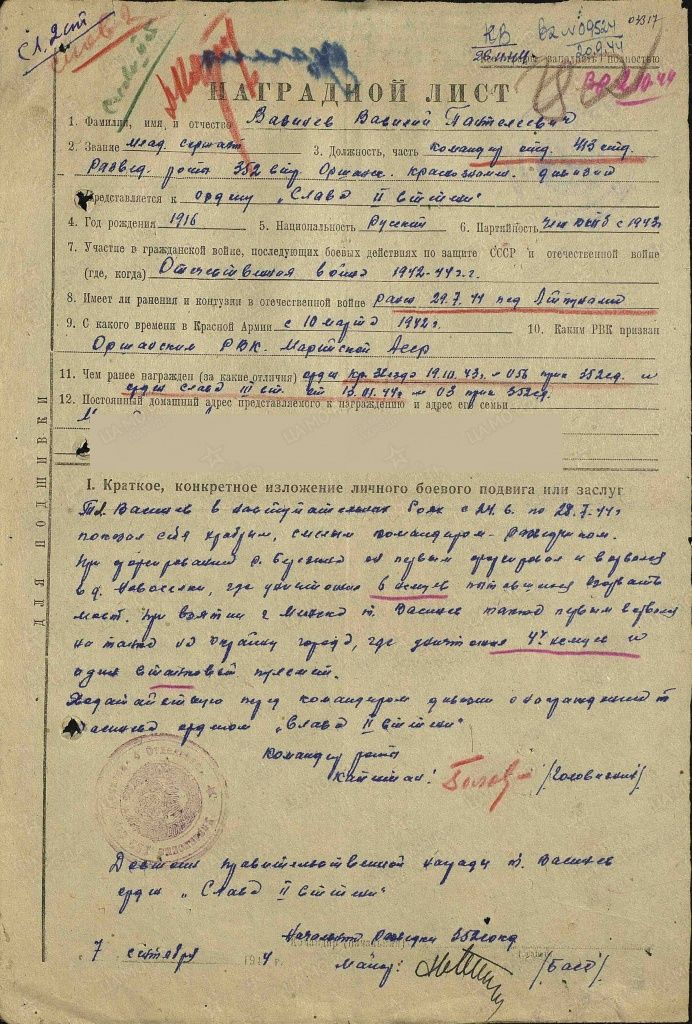 Сл. 2 ст
Слава 2
КВ
В2 № 09524
20.9.44
04317
заполнять полностью
2.10.44
НАГРАДНОЙ ЛИСТ
1. Фамилия, имя и отчество Васинев Василий Пантелеевич
2. Звание млад. сержант 3. Должность, часть командир отд. 413 отд.
развед. рота 352 стр. Оршанск. краснознам. дивизии
Представляется к ордену „Слава II степени“
4. Год рождения 1916 5. Национальность Русский 6. Партийность член ВКПб с 1943г
7. Участие в гражданской войне, последующих боевых действиях по защите СССР и отечественной войне
(где, когда) Отечественная война 1942-44г.г.
8. Имеет ли ранения и контузии в отечественной войне ранен 29.7.44 под
9. С какого времени в Красной Армии с 10 марта 1942г. 10. Каким РВК призван
Оршанским РВК. Марийской Асср
11. Чем ранее награжден (за какие отличия) орден Кр. Звезда 19.10.43г. № 056 прик 352сд. и
орден Слава III ст. от 13.05.44г № 03 прик 352сд.
12. Постоянный домашний адрес представляемого к награждению и адрес его семьи
ДЛЯ ПОДШИВКИ
I. Краткое, конкретное изложение личного боевого подвига или заслуг
Тов. Васинев в наступательных боях с 24.6. по 28.7.44г
показал себя храбрым, смелым командиром-разведчиком.
При форсировании р. Березина он первым форсировал и ворвался
в д. Новоселки, где уничтожил 6 немцев пытавшихся взорвать
мост. При взятии г. Минска т. Васинев также первым ворвался
на танке на окраину города, где уничтожил 4х немцев и
один станковый пулемет.
Ходатайствую перед командиром дивизии о награждении т
Васинева орденом „Слава II степени“
Командир роты
Капитан:
Достоин правительственной награды т. Васинев
орден „Слава II степени“
Начальник разведки 352 сокд
7 сентября 1944
Майор: /Баев/